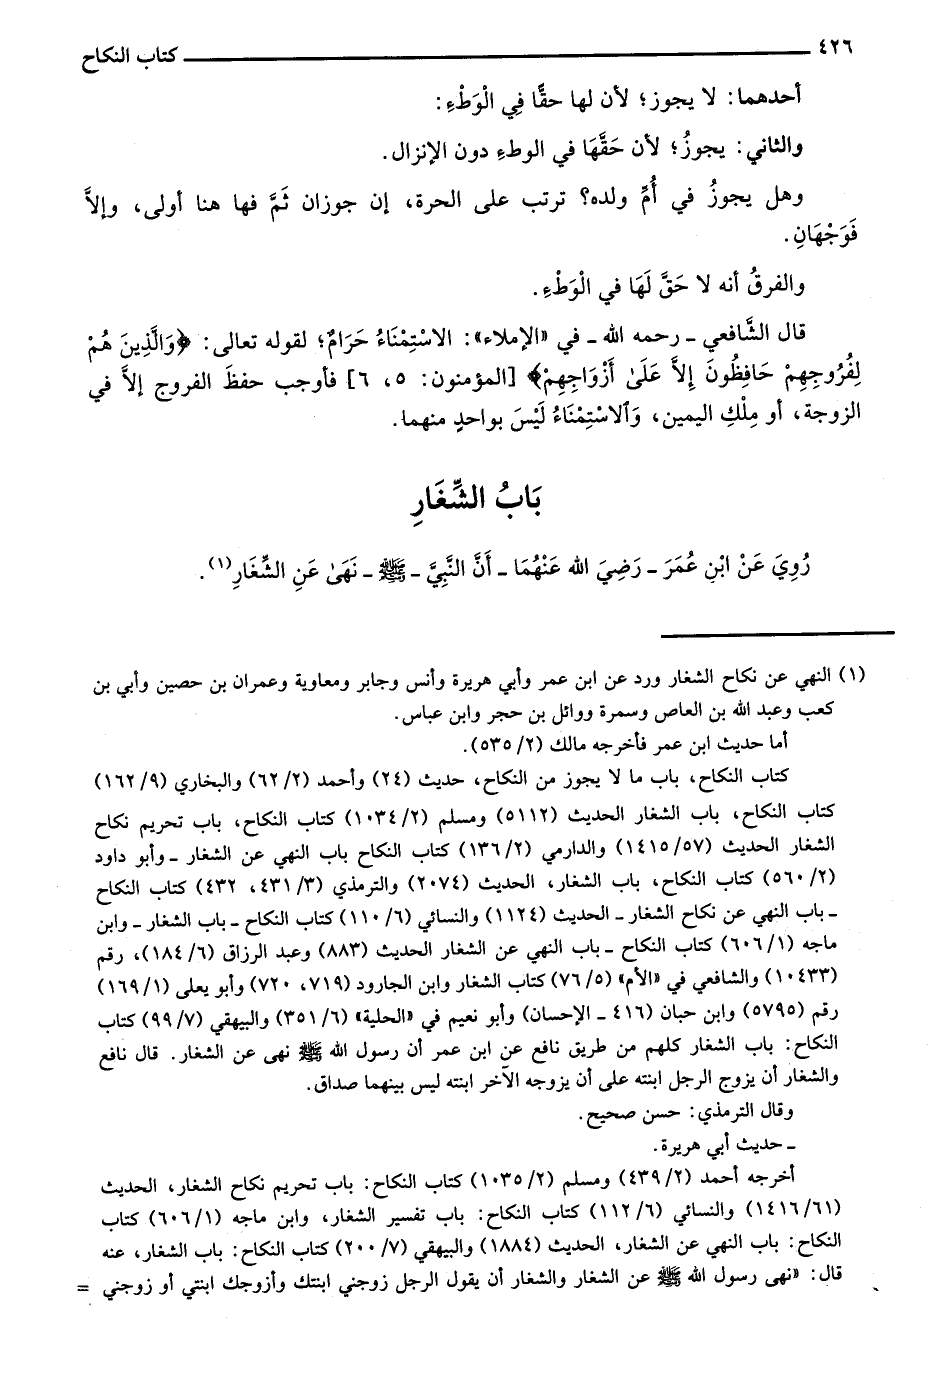 ٤٢٦ كتاب النكاح
أحدهما: لا يجوز؛ لأن لها حقًّا فِي الْوَطْءِ:
والثاني: يجوزُ؛ لأن حَقَّهَا في الوطءِ دون الإنزال.
وهل يجوزُ في أُمِّ ولده؟ ترتب على الحرة، إن جوزان ثَمَّ فها هنا أولى، وإلاَّ
فَوَجْهَانِ.
والفرقُ أنه لا حَقَّ لَهَا في الْوَطْءِ.
قال الشَّافعي ـ رحمه الله ـ في «الإملاء»: الاسْتِمْنَاءُ حَرَامٌ؛ لقوله تعالى: ﴿وَالَّذِينَ هُمْ
لِفُرُوجِهِمْ حَافِظُونَ إِلاَّ عَلَىٰ أَزْوَاجِهِمْ﴾ [المؤمنون: ٥، ٦] فأوجب حفظَ الفروج إلاَّ في
الزوجة، أو مِلْكِ اليمين، وَٱلاسْتِمْنَاءُ لَيْسَ بواحدٍ منهما.
بَابُ الشِّغَارِ
رُوِيَ عَنْ ابْنِ عُمَرَ ـ رَضِيَ الله عَنْهُمَا ـ أَنَّ النَّبِيَّ ـ ﷺ ـ نَهَىٰ عَنِ الشِّغَارِ(١).
(١) النهي عن نكاح الشغار ورد عن ابن عمر وأبي هريرة وأنس وجابر ومعاوية وعمران بن حصين وأبي بن
كعب وعبد الله بن العاص وسمرة ووائل بن حجر وابن عباس.
أما حديث ابن عمر فأخرجه مالك (٢/ ٥٣٥).
كتاب النكاح، باب ما لا يجوز من النكاح، حديث (٢٤) وأحمد (٢/ ٦٢) والبخاري (٩/ ١٦٢)
كتاب النكاح، باب الشغار الحديث (٥١١٢) ومسلم (٢/ ١٠٣٤) كتاب النكاح، باب تحريم نكاح
الشغار الحديث (٥٧/ ١٤١٥) والدارمي (٢/ ١٣٦) كتاب النكاح باب النهي عن الشغار ـ وأبو داود
(٢/ ٥٦٠) كتاب النكاح، باب الشغار، الحديث (٢٠٧٤) والترمذي (٣/ ٤٣١، ٤٣٢) كتاب النكاح
ـ باب النهي عن نكاح الشغار ـ الحديث (١١٢٤) والنسائي (٦/ ١١٠) كتاب النكاح ـ باب الشغار ـ وابن
ماجه (١/ ٦٠٦) كتاب النكاح ـ باب النهي عن الشغار الحديث (٨٨٣) وعبد الرزاق (٦/ ١٨٤)، رقم
(١٠٤٣٣) والشافعي في «الأم» (٥/ ٧٦) كتاب الشغار وابن الجارود (٧١٩، ٧٢٠) وأبو يعلى (١/ ١٦٩)
رقم (٥٧٩٥) وابن حبان (٤١٦ ـ الإحسان) وأبو نعيم في «الحلية» (٦/ ٣٥١) والبيهقي (٧/ ٩٩) كتاب
النكاح: باب الشغار كلهم من طريق نافع عن ابن عمر أن رسول الله ﷺ نهى عن الشغار. قال نافع
والشغار أن يزوج الرجل ابنته على أن يزوجه الآخر ابنته ليس بينهما صداق.
وقال الترمذي: حسن صحيح.
ـ حديث أبي هريرة.
أخرجه أحمد (٢/ ٤٣٩) ومسلم (٢/ ١٠٣٥) كتاب النكاح: باب تحريم نكاح الشغار، الحديث
(٦١/ ١٤١٦) والنسائي (٦/ ١١٢) كتاب النكاح: باب تفسير الشغار، وابن ماجه (١/ ٦٠٦) كتاب
النكاح: باب النهي عن الشغار، الحديث (١٨٨٤) والبيهقي (٧/ ٢٠٠) كتاب النكاح: باب الشغار، عنه
قال: «نهى رسول الله ﷺ عن الشغار والشغار أن يقول الرجل زوجني ابنتك وأزوجك ابنتي أو زوجني =